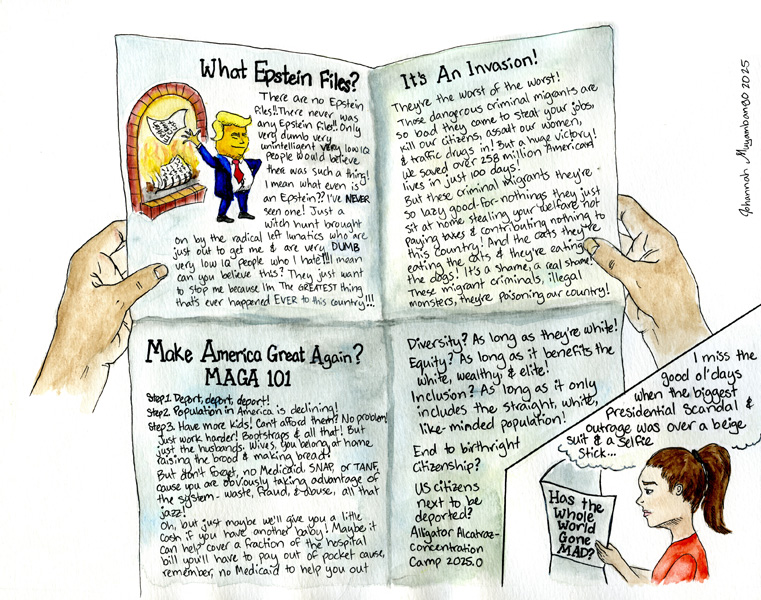 What Epstein Files?
There are no Epstein
Files!! There never was
any Epstein file!! Only
very dumb very
unintelligent very low IQ
people would believe
there was such a thing!
I mean what even is
an Epstein?? I've NEVER
seen one! Just a
witch hunt brought
on by the radical left lunatics who are
just out to get me & are very DUMB
very low IQ people who I hate!!! I mean
can you believe this? They just want
to stop me because I'm The GREATEST thing
that's ever happened EVER to this country!!!
It's An Invasion!
They're the worst of the worst!
Those dangerous criminal migrants are
so bad they came to steal your jobs,
kill our citizens, assault our women,
& traffic drugs in! But a huge victory!
We saved over 258 million American
lives in just 100 days!
But these criminal Migrants they're
so lazy good-for-nothings they just
sit at home stealing your welfare not
paying taxes & contributing nothing to
this country! And the cats they're
eating the cats & they're eating
the dogs! It's a shame, a real shame!
These migrant criminals, illegal
monsters, they're poisoning our country!
Make America Great Again?
MAGA 101
Step 1 Deport, deport, deport!
Step 2 Population in America is declining!
Step 3. Have more kids! Can't afford them? No problem!
Just work harder! Bootstraps & all that! But
just the husbands. Wives, you belong at home
raising the brood & making bread!
But don't forget, no Medicaid, SNAP, or TANF,
cause you are obviously taking advantage of
the system - waste, fraud, & abuse, all that
jazz!
Oh, but just maybe we'll give you a little
cash if you have another baby! Maybe it
can help cover a fraction of the hospital
bill you'll have to pay out of pocket cause,
remember, no Medicaid to help you out
Diversity? As long as they're white!
Equity? As long as it benefits the
white, wealthy, & elite!
Inclusion? As long as it only
includes the straight, white,
like-minded population!
End to birthright
citizenship?
US citizens
next to be
deported?
Alligator Alcatraz-
Concentration
Camp 2025.0
I miss the
good ol' days
when the biggest
Presidential Scandal &
outrage was over a beige
suit & a selfie
stick...
Has the
Whole
World
Gone
MAD?
Johannah Muyambango 2025